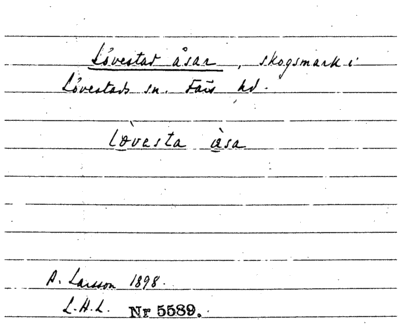 Lövestad åsar, skogsmark i
Lövestads sn. Färs hd.
lòvesta àsa
A. Larsson 1898.
L.A.L. Nr 5589.